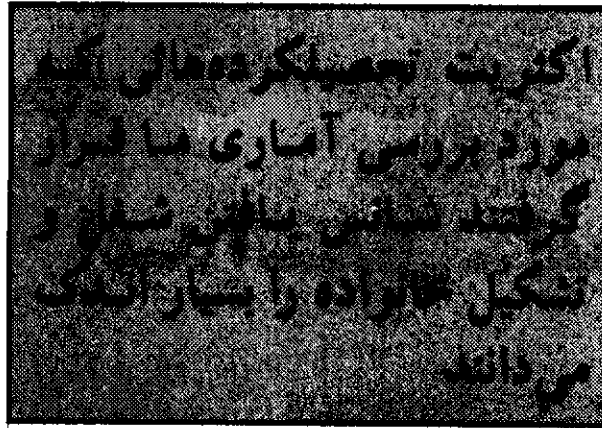 اکثریت تحصیلکرده‌هائی که
مورد بررسی آماری ما قرار
گرفتند شانس یافتن شغل و
تشکیل خانواده را بسیار اندک
می‌دانند.